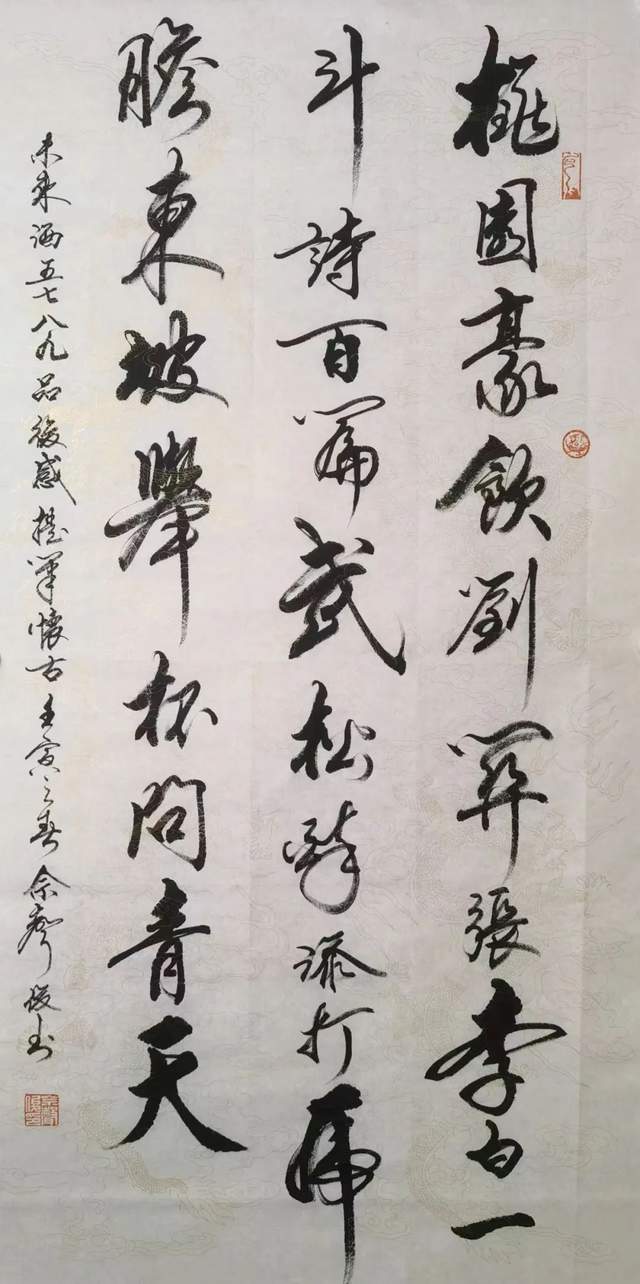 桃園豪飲劉關張李白一
斗詩百篇武松醉添打虎
膽東坡舉杯問青天
未來酒五七八九品後感提筆懷古壬寅之春佘